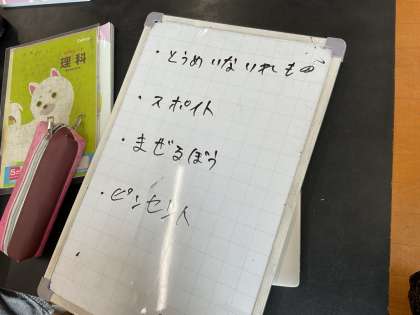 理科
・とうめいないれもの
・スポイト
・まぜるぼう
・ピンセット